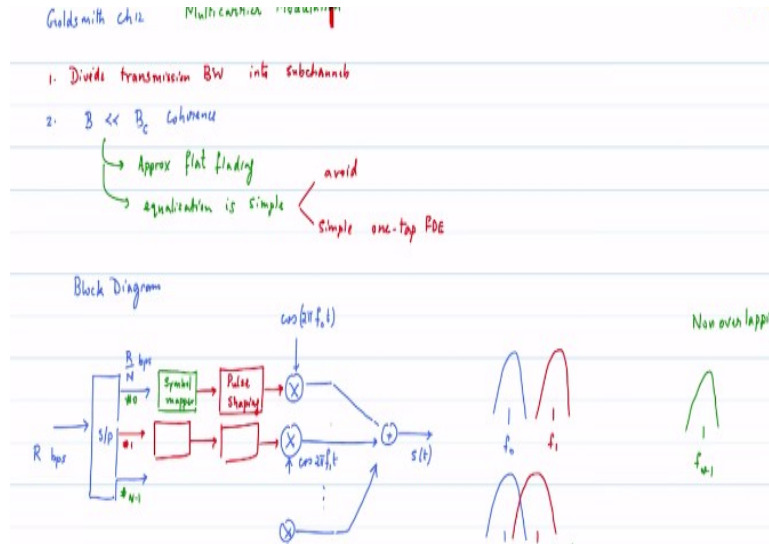 Goldsmith Ch12 Multicarrier Modulation
1. Divide transmission BW into subchannels
2. B << B_c Coherence
Approx flat fading
avoid
equalization is simple
simple one-tap FDE
Block Diagram
cos(2πf₀t)
Non overlappi
R/N bps
#0
Symbol mapper
Pulse Shaping
X
R bps
S/P
#1
X
cos2πf₁t
+
s(t)
f₀
f₁
f_N-1
#N-1
⋮
X